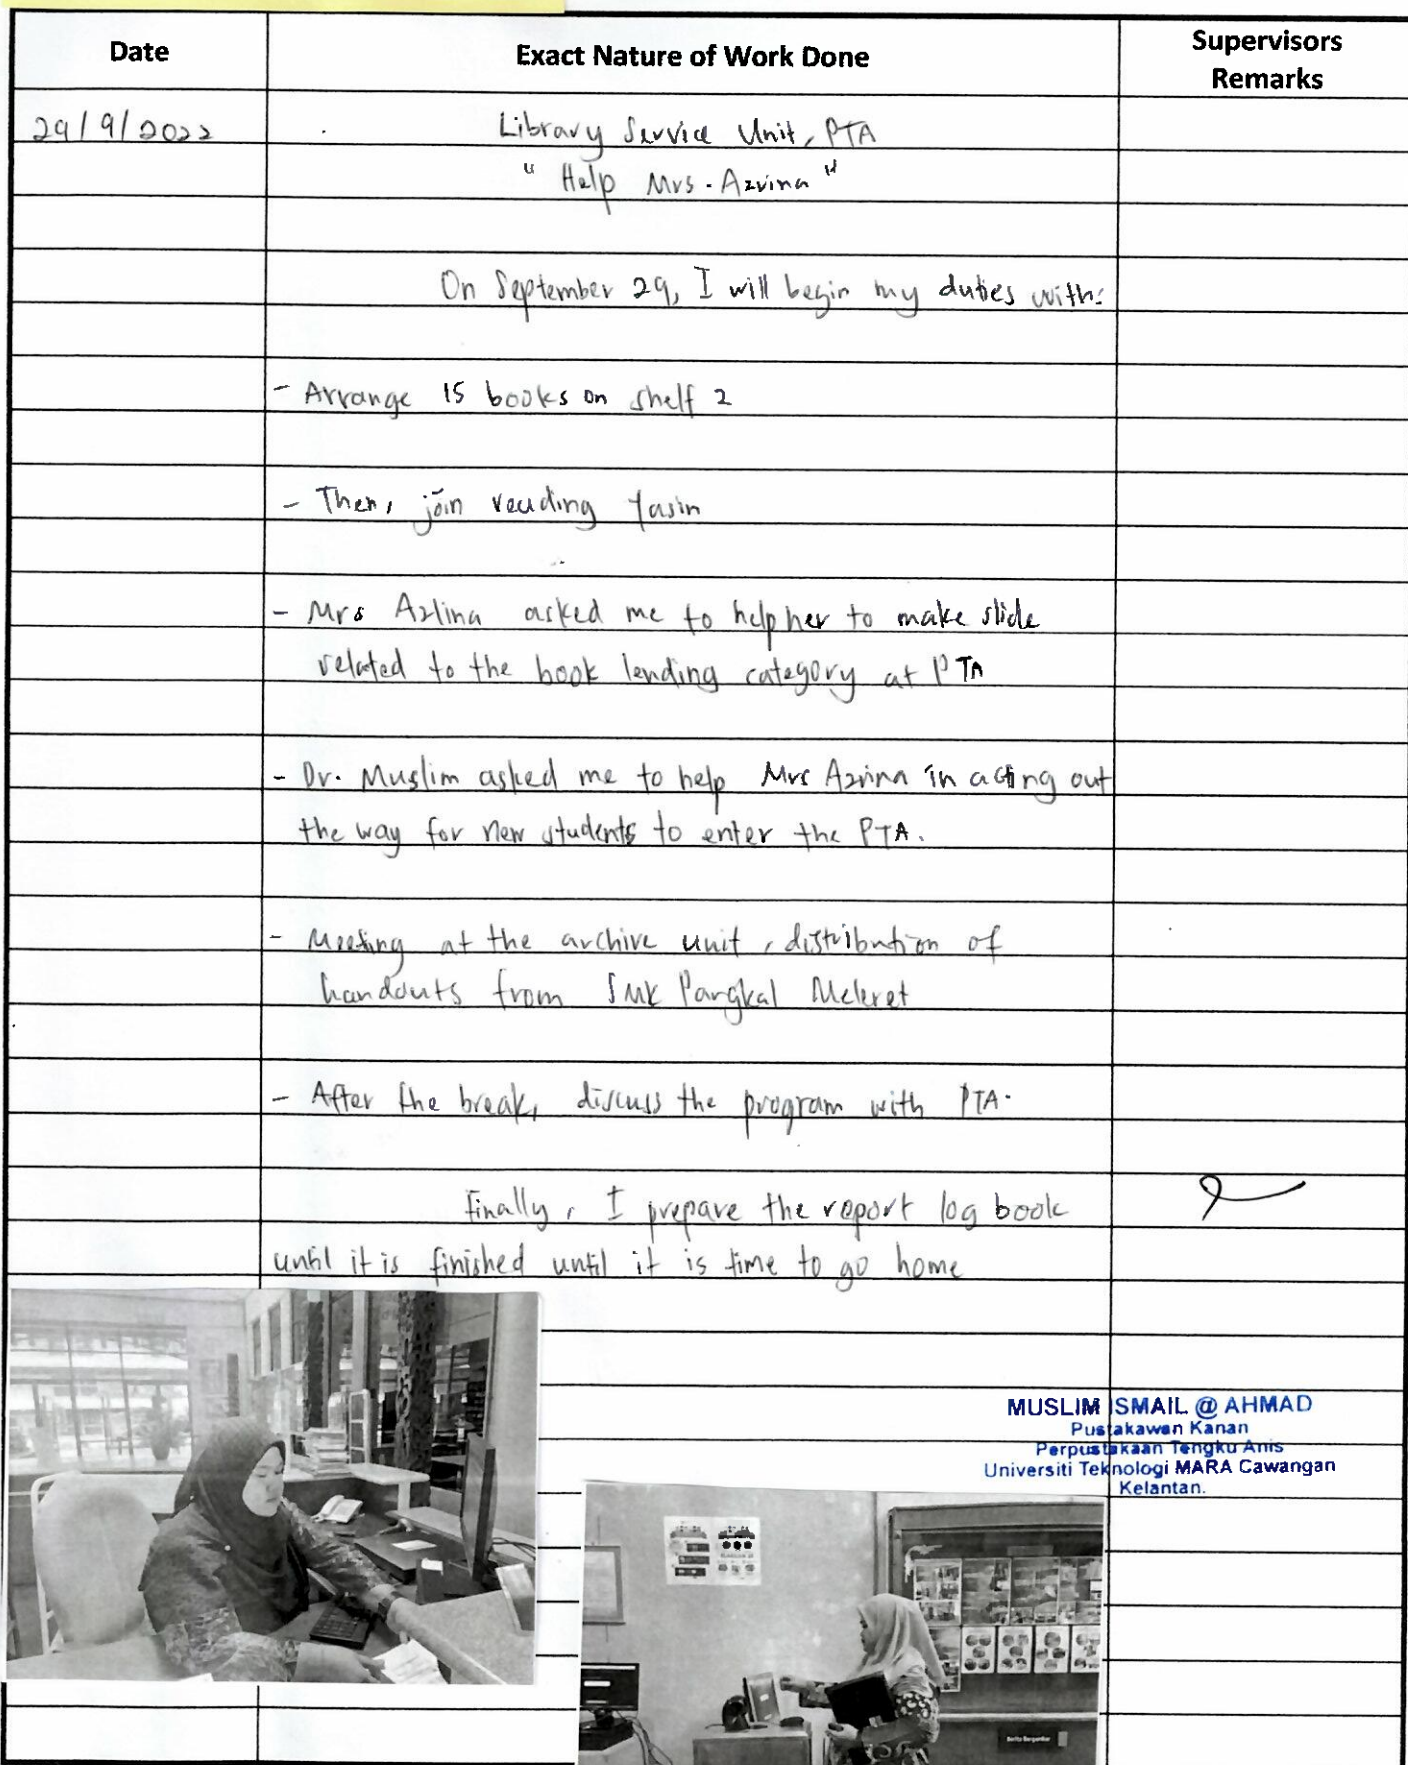 Date
Exact Nature of Work Done
Supervisors
Remarks
29/9/2022
Library Service Unit, PTA
"Help Mrs. Azvina"
On September 29, I will begin my duties with:
- Arrange 15 books on shelf 2
- Then, join reading Yasin
- Mrs Azlina asked me to help her to make slide
related to the book lending category at PTA
- Dr. Muslim asked me to help Mrs Azvina in acting out
the way for new students to enter the PTA.
- Meeting at the archive unit, distribution of
handouts from SMK Pangkal Meleret
- After the break, discuss the program with PTA.
Finally, I prepare the report log book
until it is finished until it is time to go home
MUSLIM ISMAIL @ AHMAD
Pustakawan Kanan
Perpustakaan Tengku Anis
Universiti Teknologi MARA Cawangan
Kelantan.